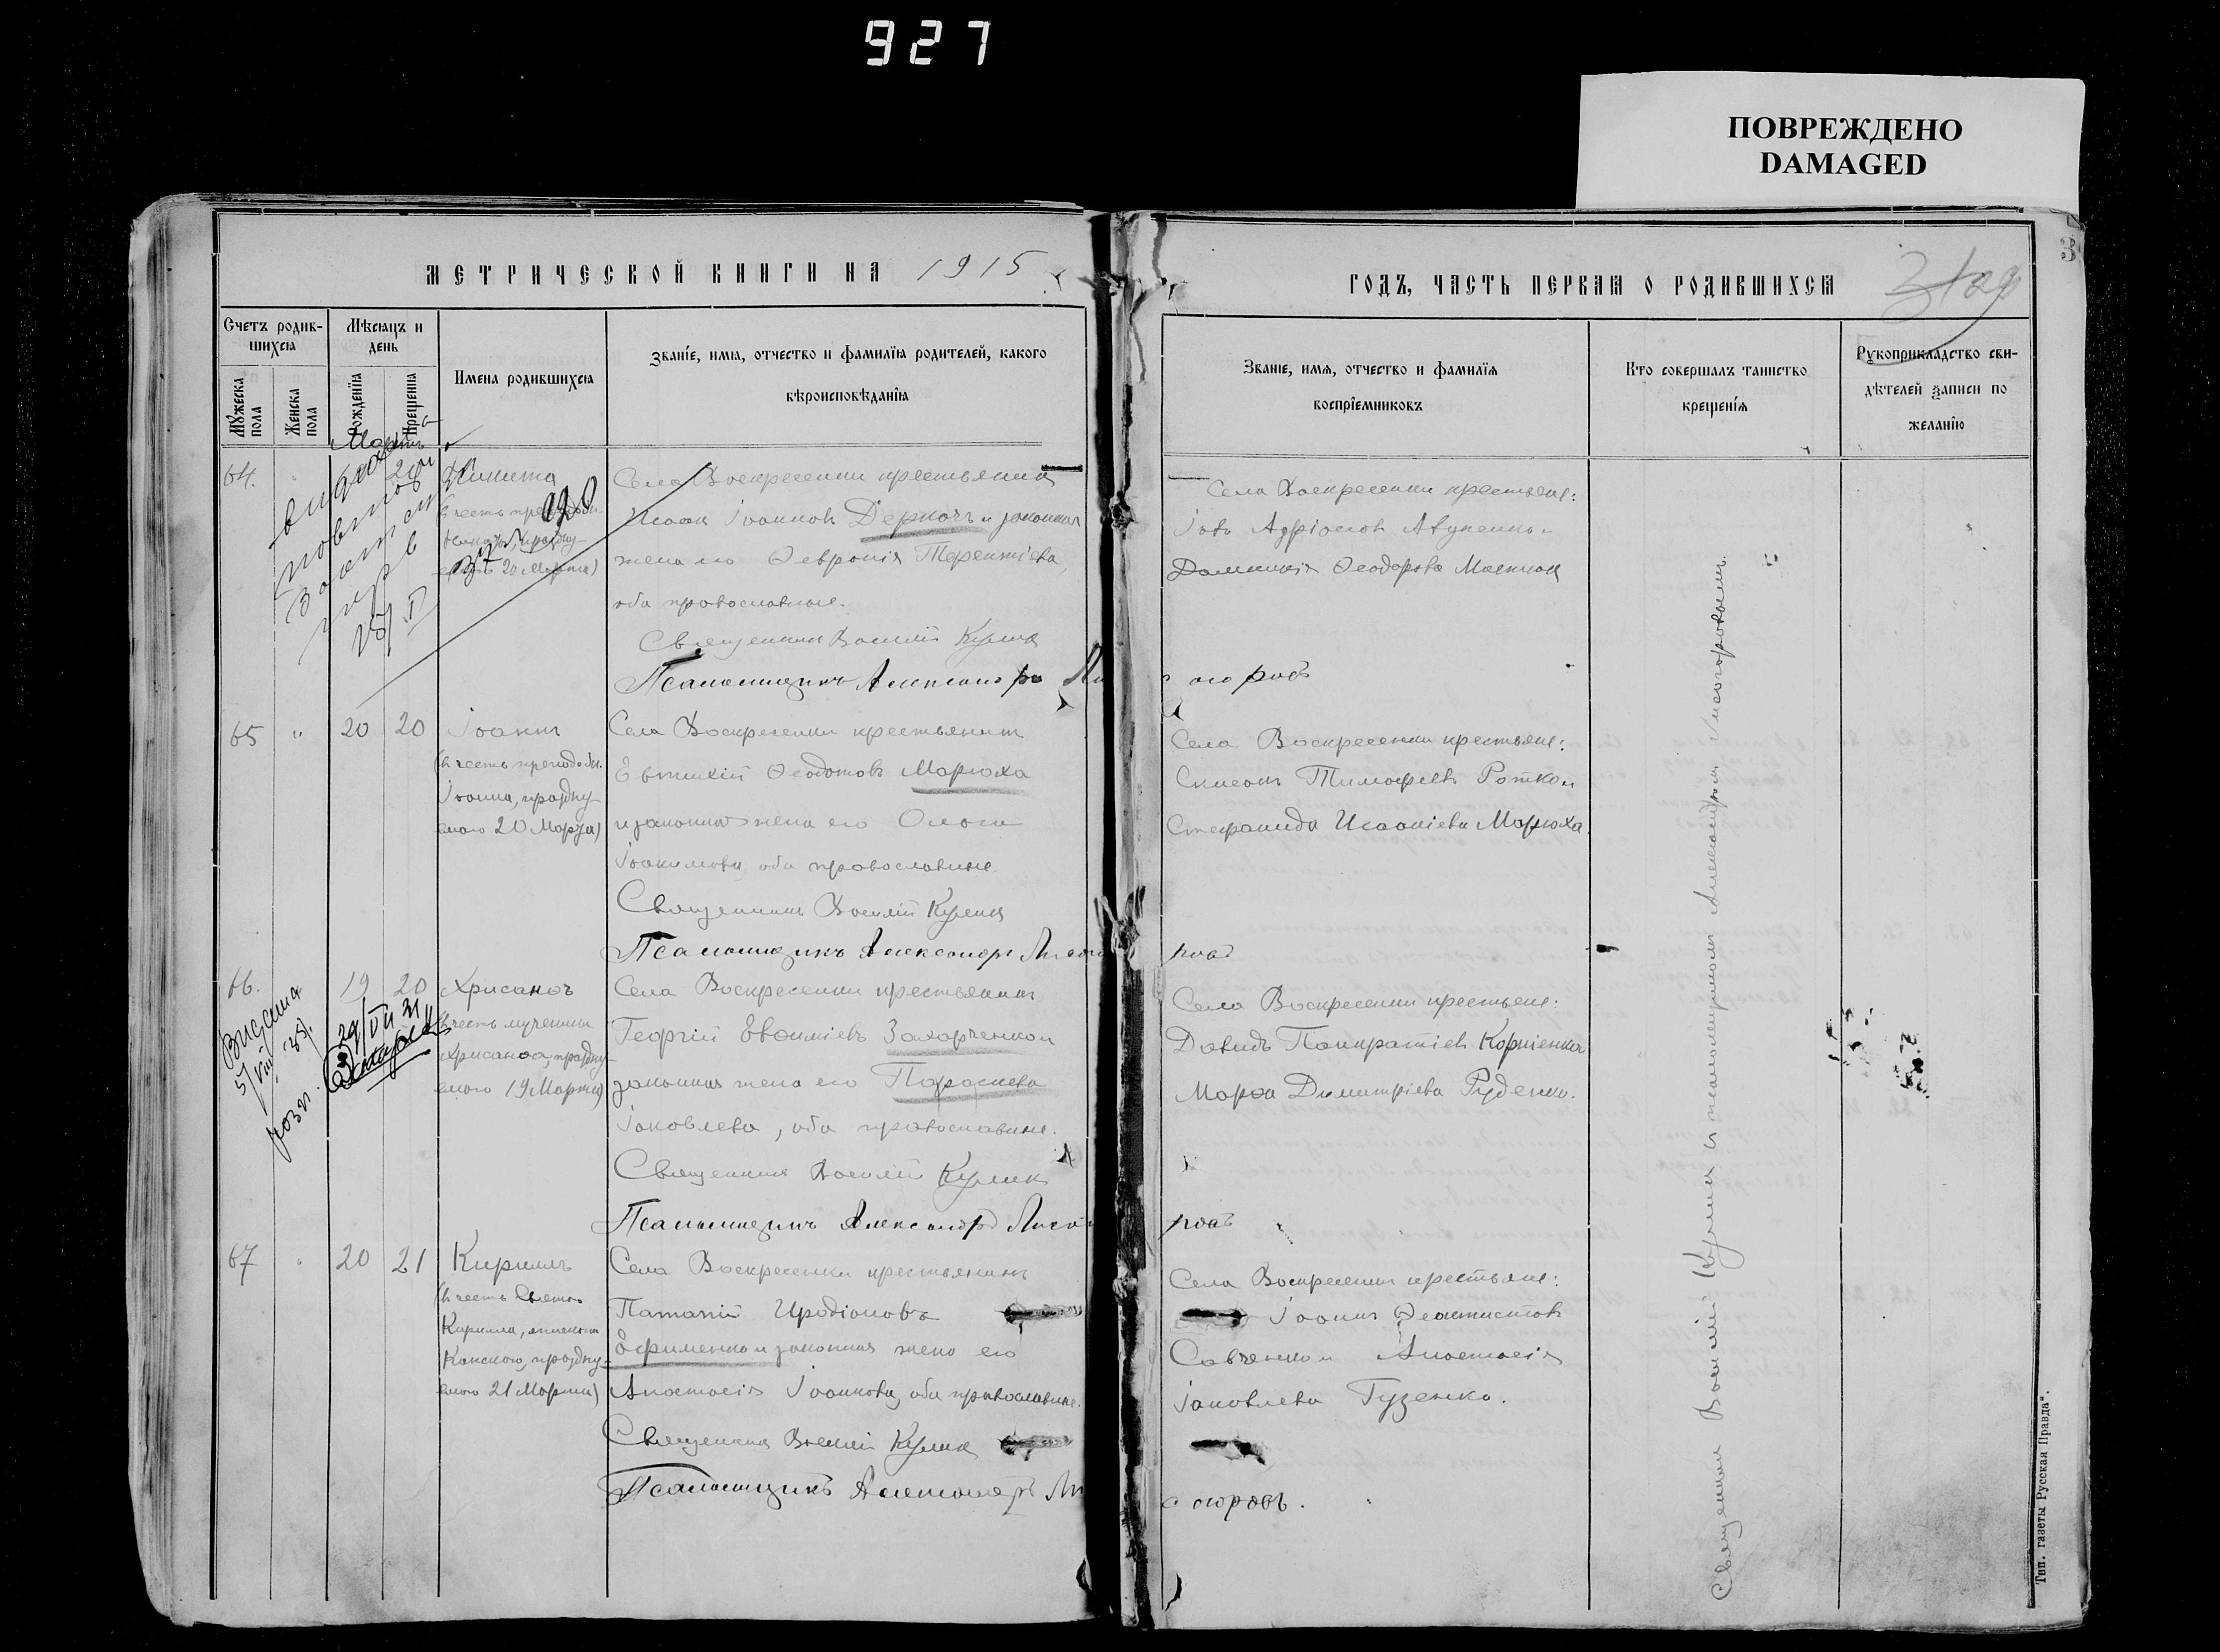 927
ПОВРЕЖДЕНО
DAMAGED
МЕТРИЧЕСКОЙ КНИГИ НА 1915
ГОДЪ, ЧАСТЬ ПЕРВАЯ О РОДИВШИХСЯ
3
Счетъ родив-
шихся
Мѣсяцъ и
день
Мужеска
пола
Женска
пола
Рожденія
Крещенія
Имена родившихся
Званіе, имя, отчество и фамилія родителей, какого
вѣроисповѣданія
Званіе, имя, отчество и фамилія
воспріемниковъ
Кто совершалъ таинство
крещенія
Рукоприкладство сви-
дѣтелей записи по
желанію
Мартъ
64.
20
Никита
праздну-
20 Марта)
Села Воскресенки крестьянинъ
Исаакъ Іоанновъ Деркачъ и законная
жена его Ѳевронія Терентіева,
оба православные.
Священникъ Василій Куликъ
Псаломщикъ Александръ Ли
согоровъ
Села Воскресенки крестьяне:
Іовъ Адріановъ
Домникія Ѳеодорова
65 " 20 20
Іоаннъ
(въ честь преподобн.
Іоанна, праздну-
емаго 20 Марта)
Села Воскресенки крестьянинъ
Евтихій Ѳеодотовъ Марюха
и законная жена его Ольга
Іоакимова, оба православные.
Священникъ Василій Куликъ
Псаломщикъ Александръ Лисого
ровъ
Села Воскресенки крестьяне:
Симеонъ Тимофеевъ Ротко и
Стефанида Исаакіева Марюха.
66. 19 20
Хрисанѳъ
въ честь мученика
Хрисанѳа, праздну-
емаго 19 Марта)
Видана
29/VII 31
Села Воскресенки крестьянинъ
Георгій Евѳиміевъ Захарченко и
законная жена его Параскева
Іаковлева, оба православные.
Священникъ Василій Куликъ
Псаломщикъ Александръ Лисого
ровъ
Села Воскресенки крестьяне:
Давидъ Панкратіевъ Корніенко и
Марѳа Димитріева Руденко.
67 " 20 21
Кириллъ
(въ честь
Кирилла, епископа
Катанскаго, праздну-
емаго 21 Марта)
Села Воскресенки крестьянинъ
Патапій Иродіоновъ
Ефименко и законная жена его
Анастасія Іоаннова, оба православные.
Священникъ Василій Куликъ
Псаломщикъ Александръ Ли
согоровъ.
Села Воскресенки крестьяне:
Іоаннъ Ѳеоктистовъ
Савченко и Анастасія
Іаковлева Гузенко.
Священникъ Василій Куликъ съ псаломщикомъ Александромъ Лисогоровымъ.
Тип. газеты Русская Правда".